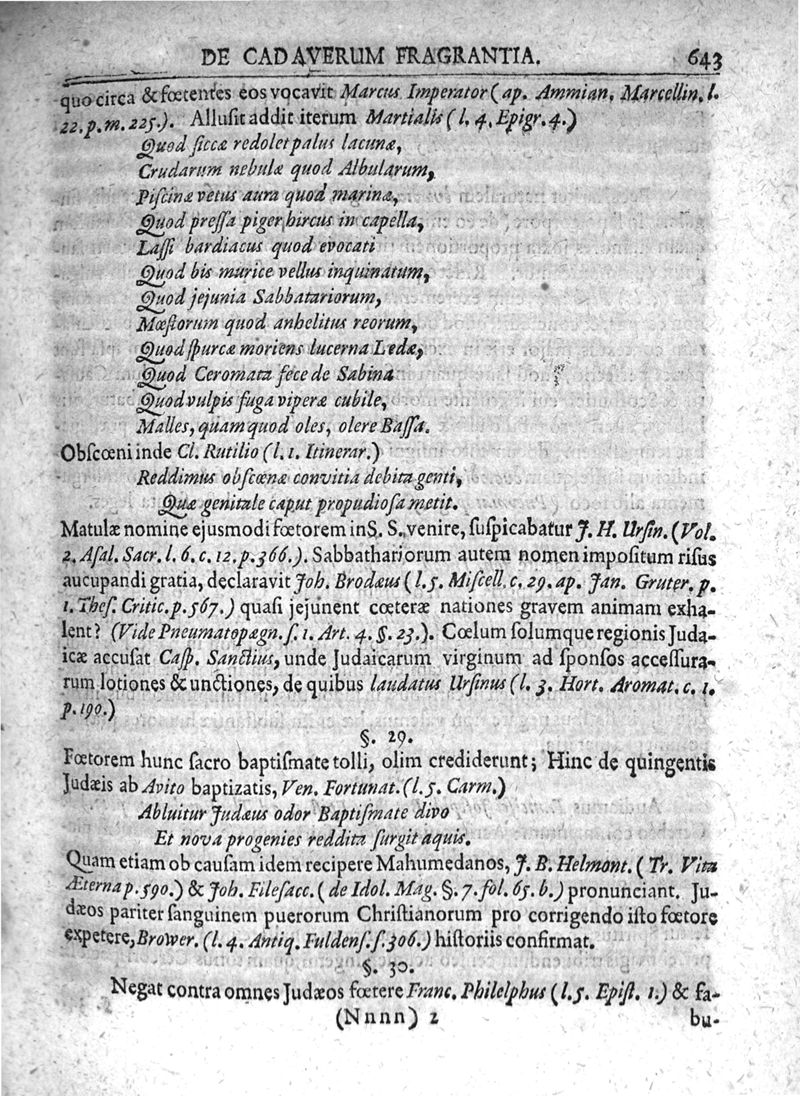 DE CADAVERUM FRAGRANTIA. 643
quo circa & fœtentes eos vocavit Marcus Imperator (ap. Ammian. Marcellin. l.
22. p. m. 225.). Allusit addit iterum Martialis (l. 4. Epigr. 4.)
Quod siccæ redolet palus lacunæ,
Crudarum nebulæ quod Albularum,
Piscinæ vetus aura quod marinæ,
Quod pressa piger hircus in capella,
Lassi bardiacus quod evocati
Quod bis murice vellus inquinatum,
Quod jejunia Sabbatariorum,
Mœstorum quod anhelitus reorum,
Quod spurcæ moriens lucerna Ledæ,
Quod Ceromata fece de Sabina
Quod vulpis fuga viperæ cubile,
Malles, quam quod oles, olere Bassa.
Obscœni inde Cl. Rutilio (l. 1. Itinerar.)
Reddimus obscœnæ convitia debita genti,
Quæ genitale caput propudiosa metit.
Matulæ nomine ejusmodi fœtorem in S. S. venire, suspicabatur J. H. Ursin. (Vol.
2. Asal. Sacr. l. 6. c. 12. p. 366.). Sabbathariorum autem nomen impositum risus
aucupandi gratia, declaravit Joh. Brodæus (l. 5. Miscell. c. 29. ap. Jan. Gruter. p.
1. Thes. Critic. p. 567.) quasi jejunent cœteræ nationes gravem animam exha-
lent? (Vide Pneumatopægn. s. 1. Art. 4. §. 23.). Cœlum solumque regionis Juda-
icæ accusat Casp. Sanctius, unde Judaicarum virginum ad sponsos accessura-
rum lotiones & unctiones, de quibus laudatus Ursinus (l. 3. Hort. Aromat. c. 1.
p. 190.)
§. 29.
Fœtorem hunc sacro baptismate tolli, olim crediderunt; Hinc de quingentis
Judæis ab Avito baptizatis, Ven. Fortunat. (l. 5. Carm.)
Abluitur Judæus odor Baptismate divo
Et nova progenies reddita surgit aquis.
Quam etiam ob causam idem recipere Mahumedanos, J. B. Helmont. (Tr. Vita
Æterna p. 590.) & Joh. Filesacc. (de Idol. Mag. §. 7. fol. 65. b.) pronunciant. Ju-
dæos pariter sanguinem puerorum Christianorum pro corrigendo isto fœtore
expetere, Brower. (l. 4. Antiq. Fuldens. s. 306.) historiis confirmat.
§. 30.
Negat contra omnes Judæos fœtere Franc. Philelphus (l. 5. Epist. 1.) & fa-
(Nnnn) 2 bu-